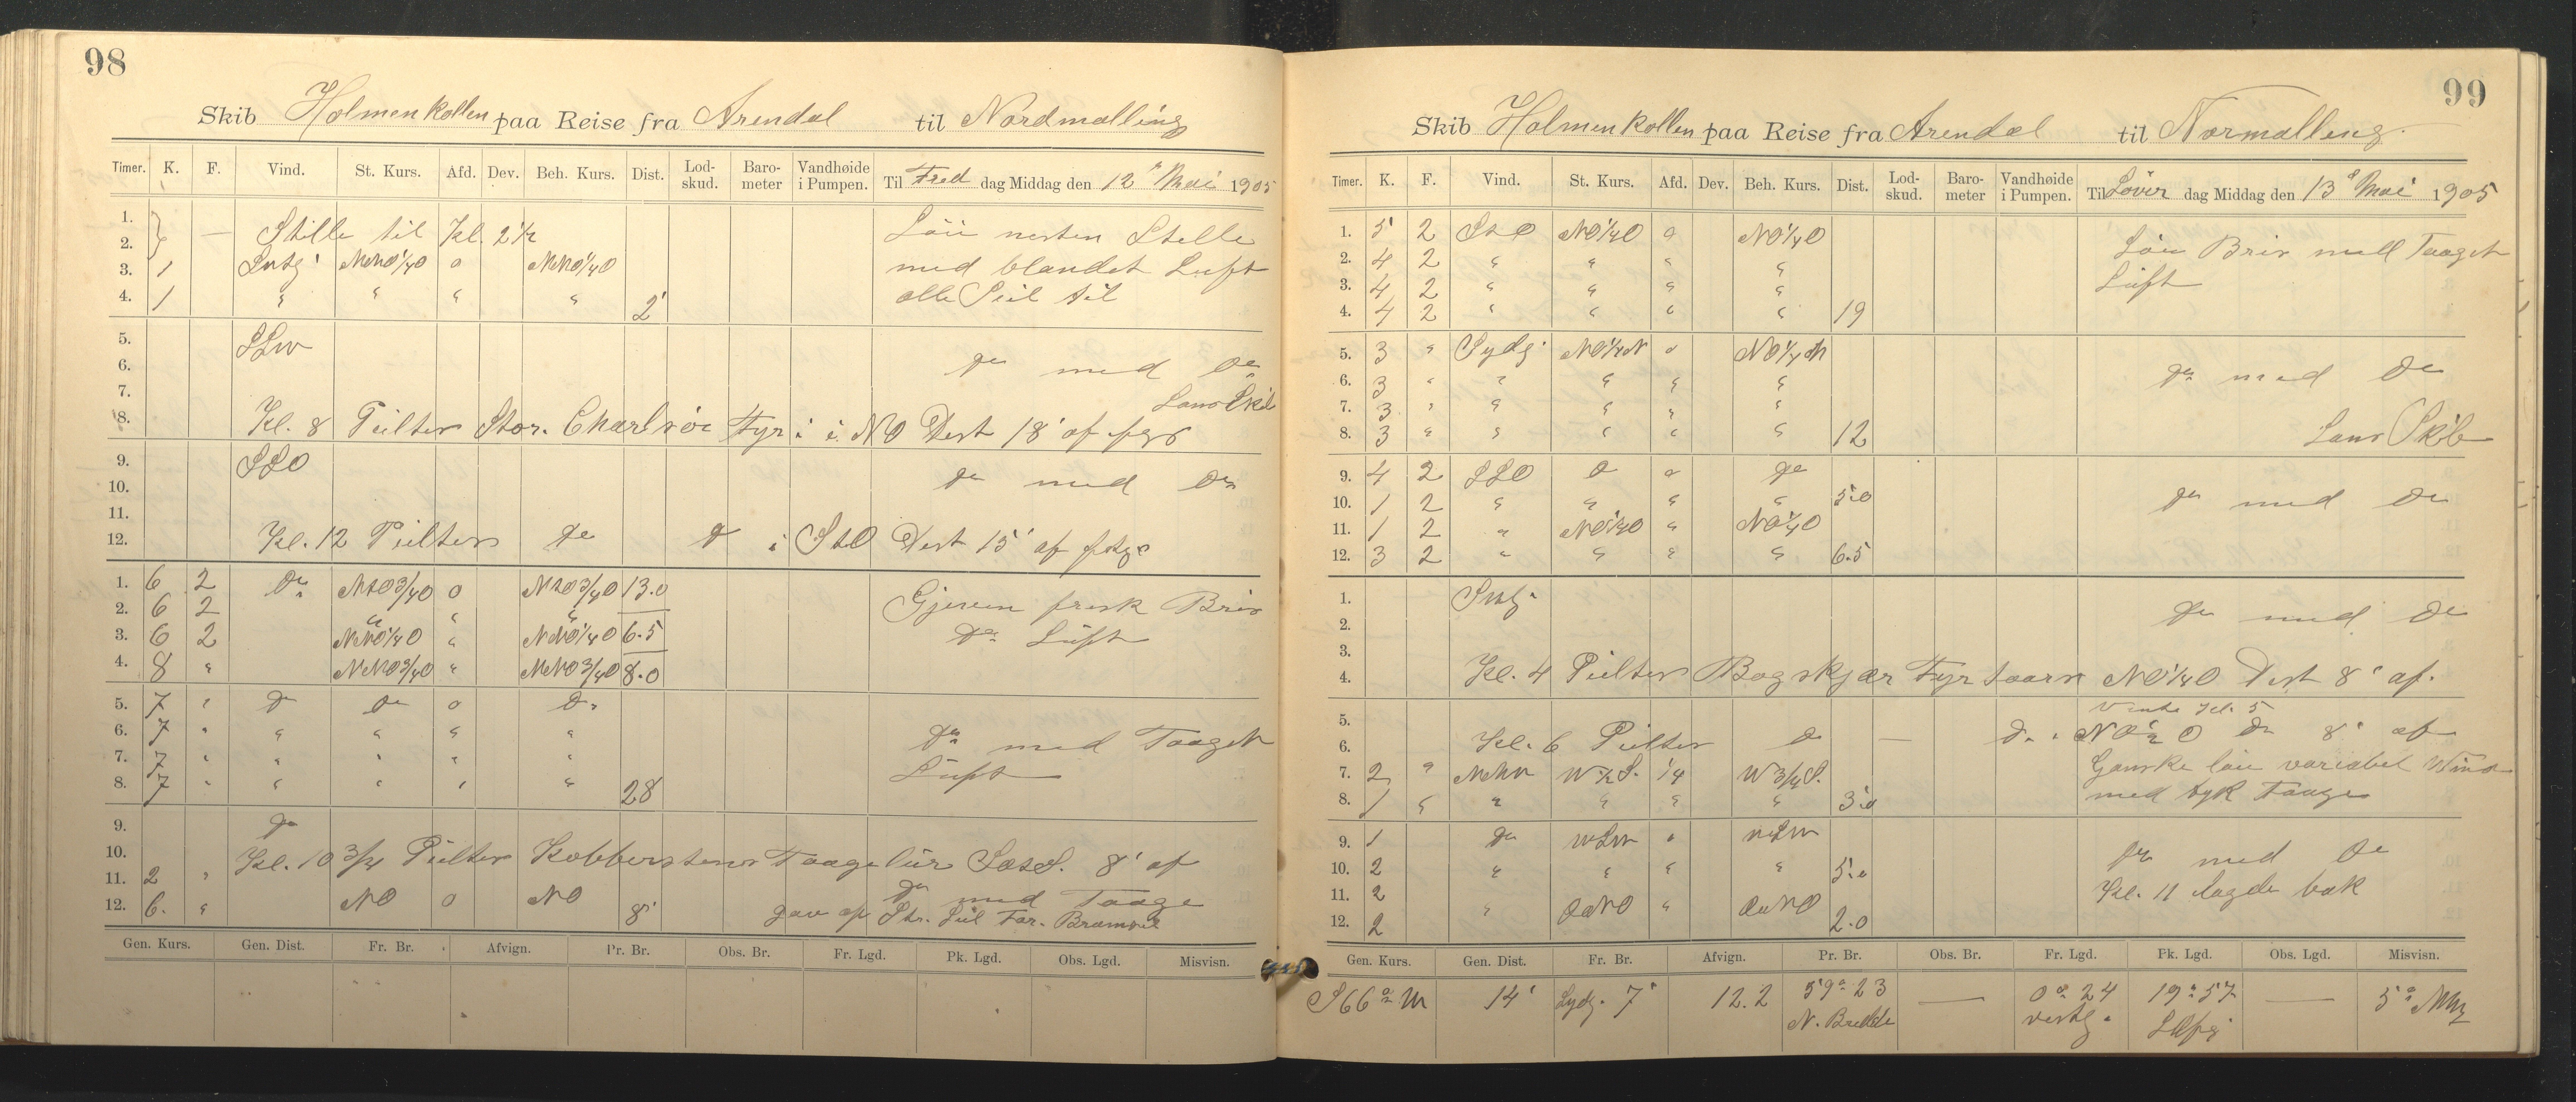 98
Skib Holmenkollen paa Reise fra Arendal til Nordmalling
Timer. K. F. Vind. St. Kurs. Afd. Dev. Beh. Kurs. Dist. Lod-skud. Baro-meter Vandhøide i Pumpen. Til Fred dag Middag den 12te Mai 1905
1. — Stille til Kl. 2 1/2 Löie nesten Stille
2.
3. 1 Sydlg. NNO 1/4 O 0 NNO 1/4 O med blandet Luft
4. 1 " " " " 2' alle Seil til
5. SSW
6. Do med Do
7. Lans Skib
8. Kl. 8 Peiltes Stor. Charlsöe Fyr i NO Dist 18' af
9. SSO
10. Do med Do
11.
12. Kl. 12 Peiltes Do Do i StO Dist 15' af
1. 6 2 Do NtO 3/4 O 0 NtO 3/4 O 13.0 Gjeven frisk Bris
2. 6 2 " " " Do Luft
3. 6 2 NNO 1/4 O " NNO 1/4 O 6.5
4. 8 " NNO 3/4 O " NNO 3/4 O 8.0
5. 7 " Do Do 0 Do
6. 7 " " " " " Do med Taaget
7. 7 " " " " " Luft
8. 7 " " " " " 28
9. Do
10. Kl. 10 3/4 Peiltes Kobberstens Taagelur 8' af
11. 2 " Do med Taage
12. 6. " NO 0 NO 8'
Gen. Kurs. Gen. Dist. Fr. Br. Afvign. Pr. Br. Obs. Br. Fr. Lgd. Pk. Lgd. Obs. Lgd. Misvisn.
99
Skib Holmenkollen paa Reise fra Arendal til Normalling.
Timer. K. F. Vind. St. Kurs. Afd. Dev. Beh. Kurs. Dist. Lod-skud. Baro-meter Vandhøide i Pumpen. Til Löver dag Middag den 13de Mai 1905
1. 5 2 StO NO 1/4 O 0 NO 1/4 O Löie Bris med Taaget
2. 4 2 " " " " Luft
3. 4 2 " " " "
4. 4 2 " " " " 19
5. 3 " Sydlg. NO 1/4 N 0 NO 1/4 N
6. 3 " " " " " Do med Do
7. 3 " " " " "
8. 3 " " " " " 12 Lans Skib
9. 4 2 SSO Do 0 Do
10. 1 2 " " " " 5.0 Do med Do
11. 1 2 " NO 1/4 O " NO 1/4 O
12. 3 2 " " " " 6.5
1. Sydlg.
2. Do med Do
3.
4. Kl. 4 Peiltes Bogskjær Fyrtaarn NO 1/4 O Dist 8' af.
5. Vendte Kl. 5
6. Kl. 6 Peiltes Do — Do i NO 1/2 O Do 8' af
7. 2 " NNW W 1/2 S. 1/4 W 3/4 S. Ganske löie variabel Wind
8. 1 " " " " " 3.0 med tyk Taage
9. 1 Do WSW " WSW
10. 2 " " " " 5.0 Do med Do
11. 2 Kl. 11 lagde bak
12. 2 " " 2.0
Gen. Kurs. Gen. Dist. Fr. Br. Afvign. Pr. Br. Obs. Br. Fr. Lgd. Pk. Lgd. Obs. Lgd. Misvisn.
S 66° W 14' Sydg. 7' 12.2 59° 23 — 0° 24 19° 57 — 5°
N. Bredde vestlg.